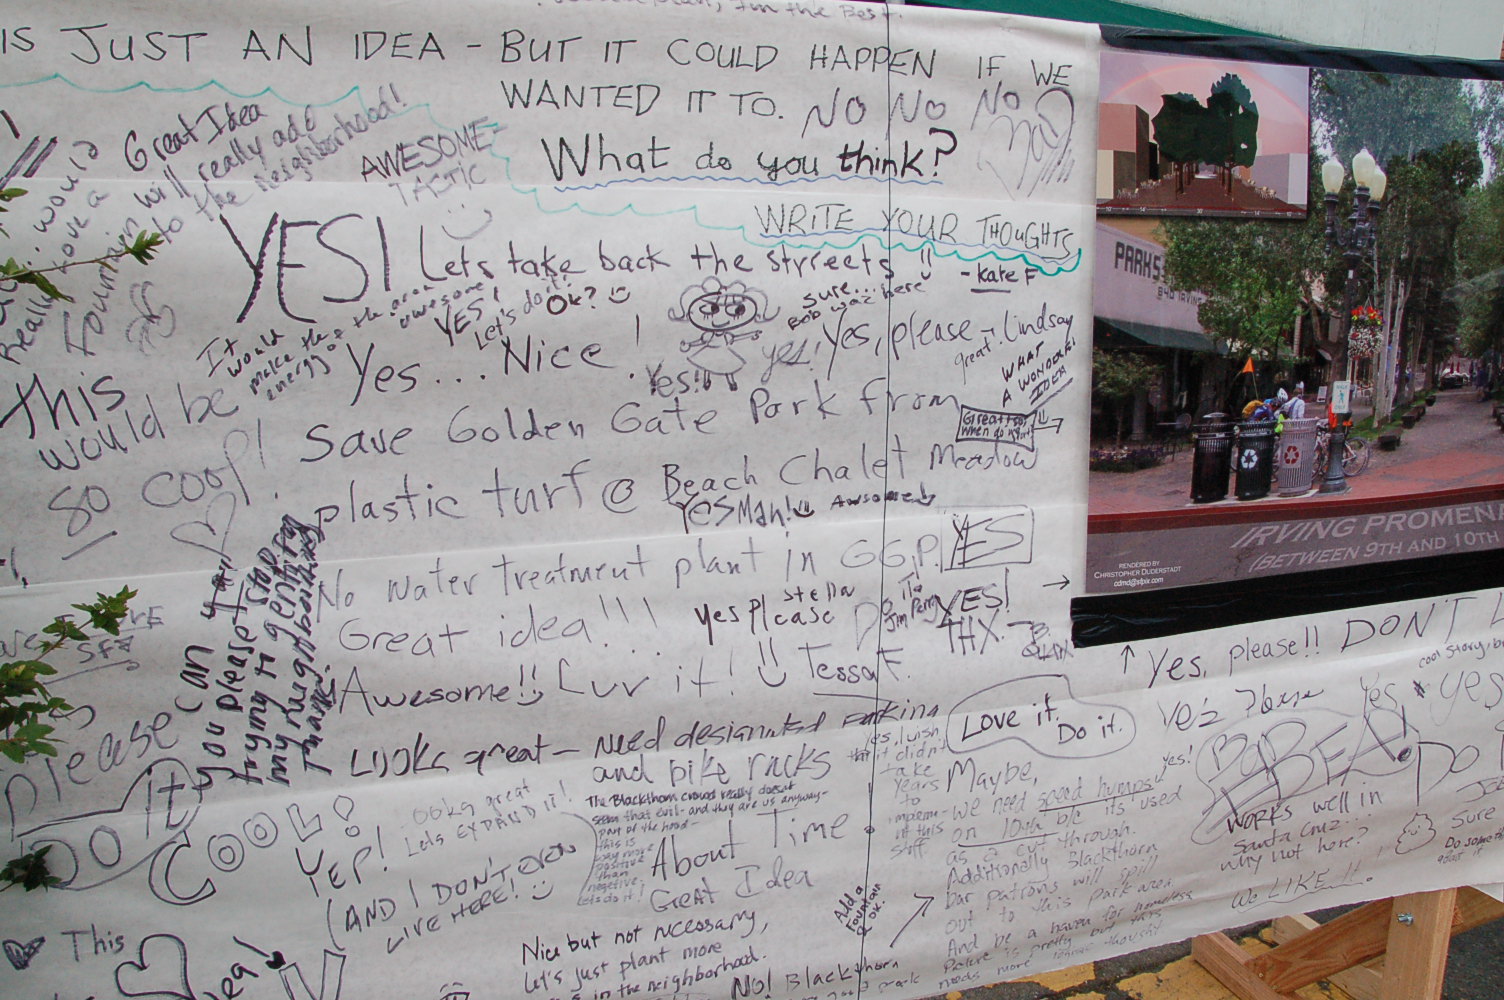 IS JUST AN IDEA - BUT IT COULD HAPPEN IF WE
WANTED IT TO. NO NO NO
What do you think?
WRITE YOUR THOUGHTS
Great Idea
will really add
to the Neighborhood!
AWESOME-
TASTIC
would
Really love a
fountain
YES! Lets take back the streets!!
- Kate F
It would
make the area
awesome
energy of
YES!
Let's do it!
OK?
Sure...
Bob waz here
Yes... Nice!
Yes!!
yes! Yes, please - Lindsay
great!
WHAT
A WONDERFUL
IDEA
this
would be
so cool!
Save Golden Gate Park from
plastic turf @ Beach Chalet Meadow
Great!
When do
Yes Mah! Awsome!
No water treatment plant in GGP.
YES
Great idea!!!
yes please
stella
Do it
Jim Perry
YES!
THX.
Awesome!! Luv it! Tessa F.
can you
you please stop
trying to gentrify
my neighborhood
Thanks.
please
DO it
Looks great - need designated parking
and bike racks
The Blackthorn crowd really doesn't
seem that evil - and they are us anyway -
part of the hood -
this is
way more
positive
than
negetive.
Lets do it!
yes, I wish
that it didn't
take
years
to
implem-
ent this
stuff.
Love it.
Do it.
COOL!
YEP!
Looks great
Lets EXPAND it!
(AND I DON'T EVEN
LIVE HERE!
About Time!
Great Idea
Maybe,
we need speed humps
on 10th b/c its used
as a cut through.
Additionally Blackthorn
bar patrons will spill
out to this park area
And be a haven for homeless
Picture is pretty but this
needs more logic thought
yes!
Add a
Fountain
OK!
Nice but not necessary,
let's just plant more
in the neighborhood.
No! Blackthorn
This
Yes, please!! DON'T
cool story, b
Yes yes
WORKS well in
Santa Cruz...
why not here?
We LIKE!!
Do
Joe
Sure
Do something
about it
PARKS
IRVING PROMEN
(BETWEEN 9TH AND 10TH
RENDERED BY
CHRISTOPHER DUDERSTADT
cdmd@sfpix.com